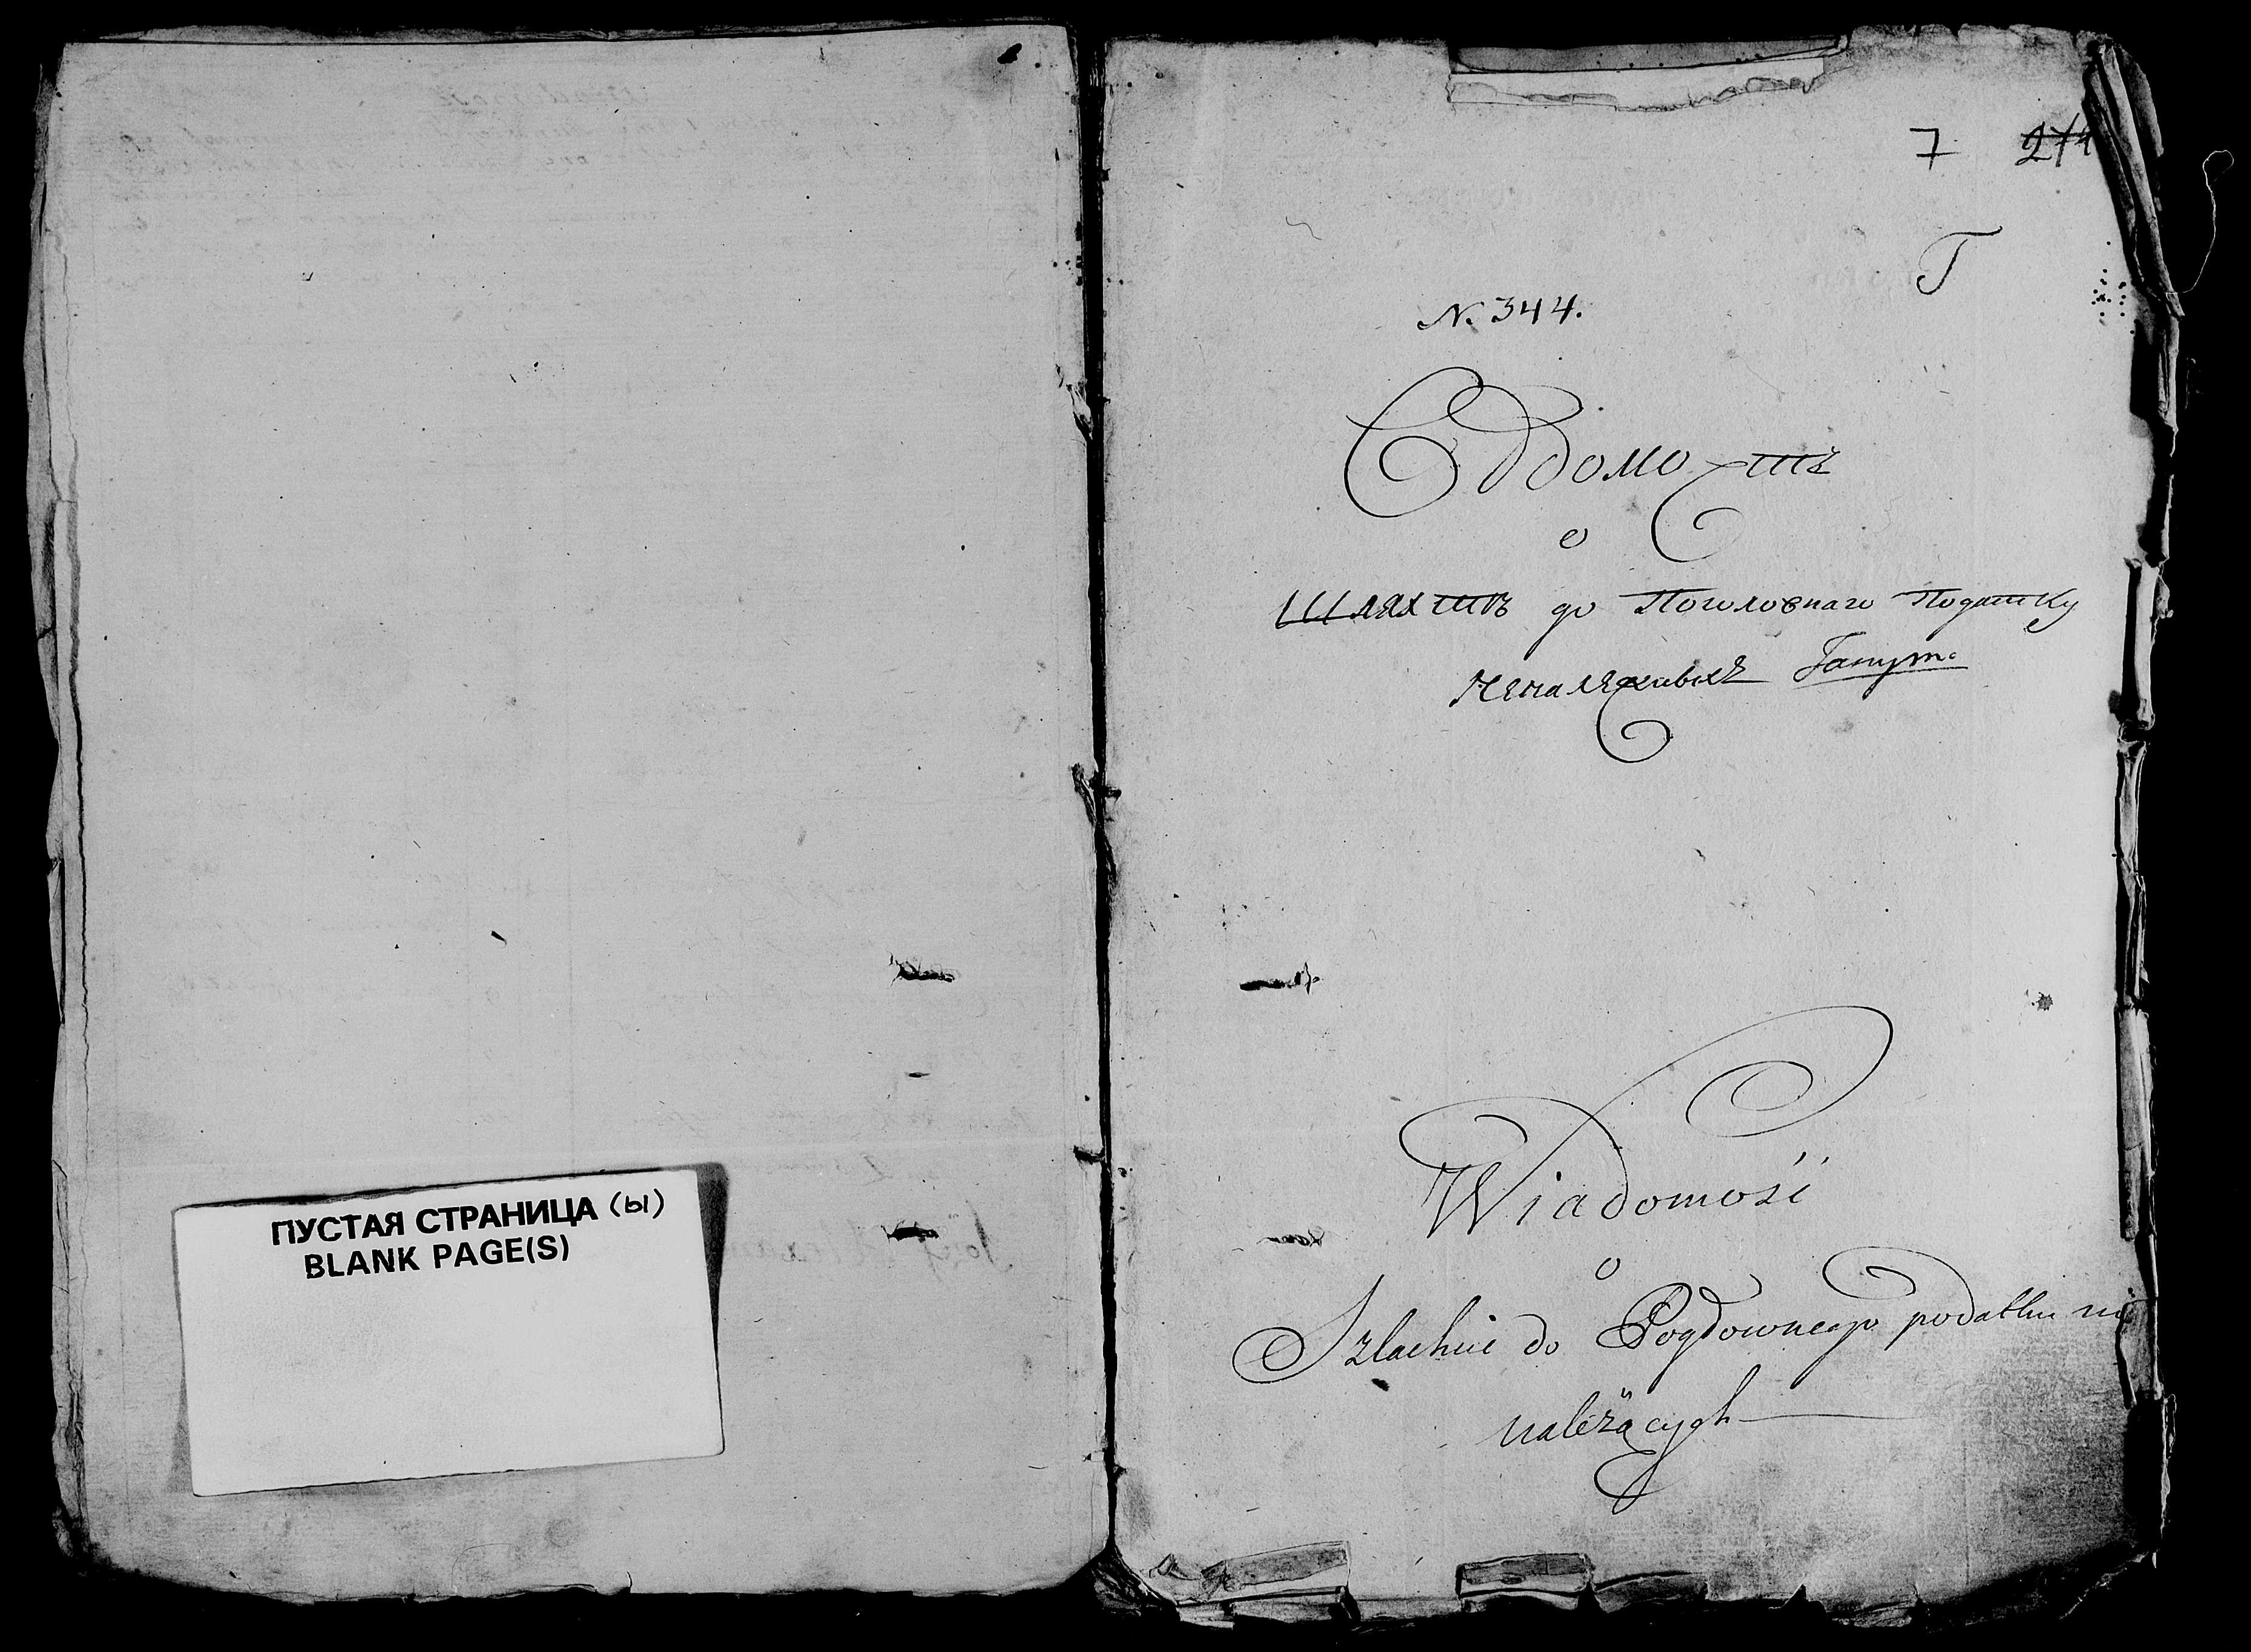 ПУСТАЯ СТРАНИЦА (ы)
BLANK PAGE(S)
7 274
Г
N. 344.
Вѣдомость
о
Шляхтѣ до Поголовнаго Податку
неналежавыхъ Ганут.
Wiadomość
o
Szlachcie do Pogłownego podatku nie
należących